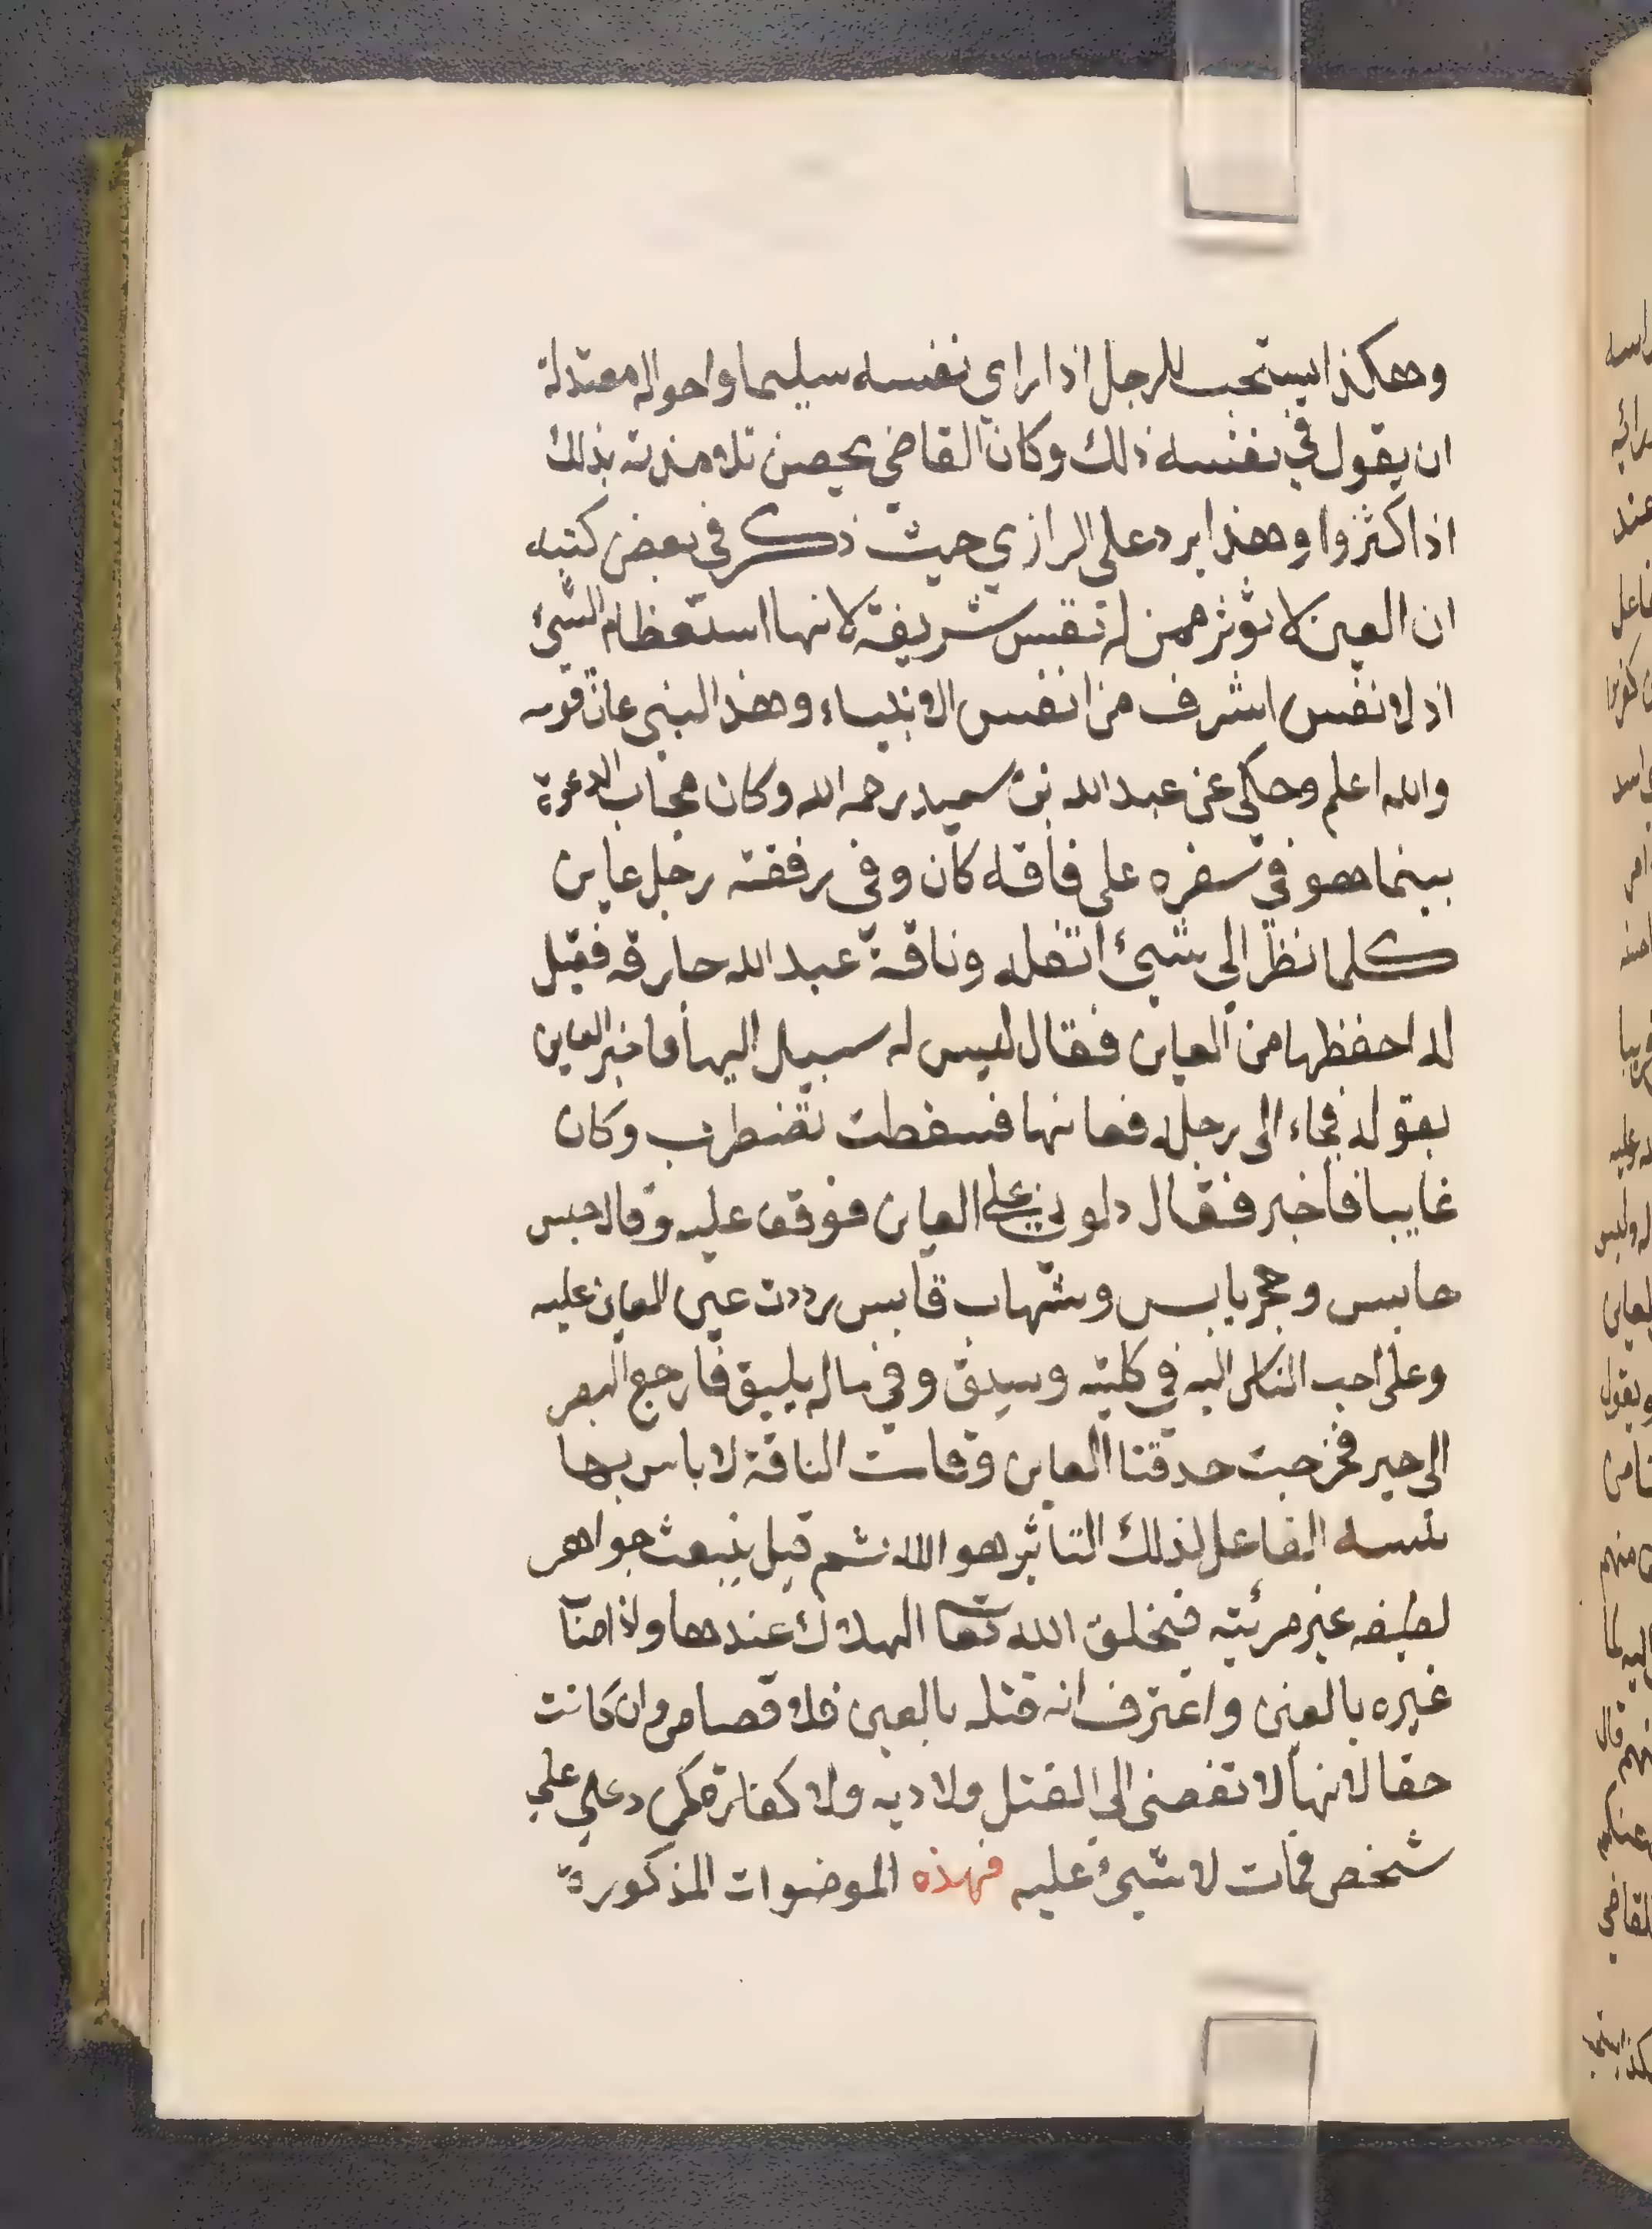 وهكذا يستحب للرجل اذا راي نفسه سليما واحواله معتدلة
ان يقول في نفسه ذلك وكان القاضي يحصن تلامذته بذلك
اذا كثروا وهذا يرد على الرازي حيث ذكر في بعض كتبه
ان العين لا تؤثر ممن له نفس شريفة لانها استعظام الشيئ
اذ لا نفس اشرف من انفس الانبياء وهذا النبي عان قومه
والله اعلم وحكى عن عبد الله بن سعيد رحمه الله وكان مجاب الدعوة
بينما هو في سفره على فاقه كان وفي رفقته رجل عاين
كلما نظر الى شيئ اتفله وناقة عبد الله حارقه فقيل
له احفظها من العاين فقال ليس له سبيل اليها فاخبر العاين
بقوله فجاء الى رحله فعانها فسقطت تضطرب وكان
غايبا فاخبر فقال دلوني على العاين فوقف عليه وقال حبس
حابس وحجر يابس وشهاب قابس رددت عين العاين عليه
وعلى احب الناس اليه في كليته وسيق وفي ماله يليق فارجع البصر
الى حير فخرجت حدقتا العاين وقامت الناقة لا باس بها
الفاعل لذلك التاثير هو الله ثم قيل ينبعث جواهر
لطيفه غير مرئيته فيخلق الله تعا الهلاك عندها ولذا
غيره بالعين واعترف انه قتله بالعين فلا قصاص وان كانت
حقا لانها لا تفضى الى القتل ولا ديه ولا كفارة كمن دعي على
شخص فمات لا شيئ عليه فهذه الموضوات المذكورة